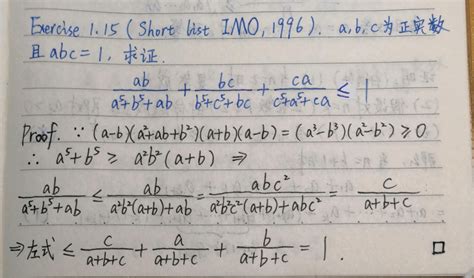 Exercise 1.15 (Short list IMO, 1996). a,b,c为正实数
且abc=1, 求证.
ab/(a⁵+b⁵+ab) + bc/(b⁵+c⁵+bc) + ca/(c⁵+a⁵+ca) ≤ 1
Proof. ∵ (a-b)(a²+ab+b²)(a+b)(a-b)=(a³-b³)(a²-b²)≥0
∴ a⁵+b⁵ ≥ a²b²(a+b) ⇒
ab/(a⁵+b⁵+ab) ≤ ab/(a²b²(a+b)+ab) = abc²/(a²b²c²(a+b)+abc²) = c/(a+b+c)
⇒左式 ≤ c/(a+b+c) + a/(a+b+c) + b/(a+b+c) = 1. □